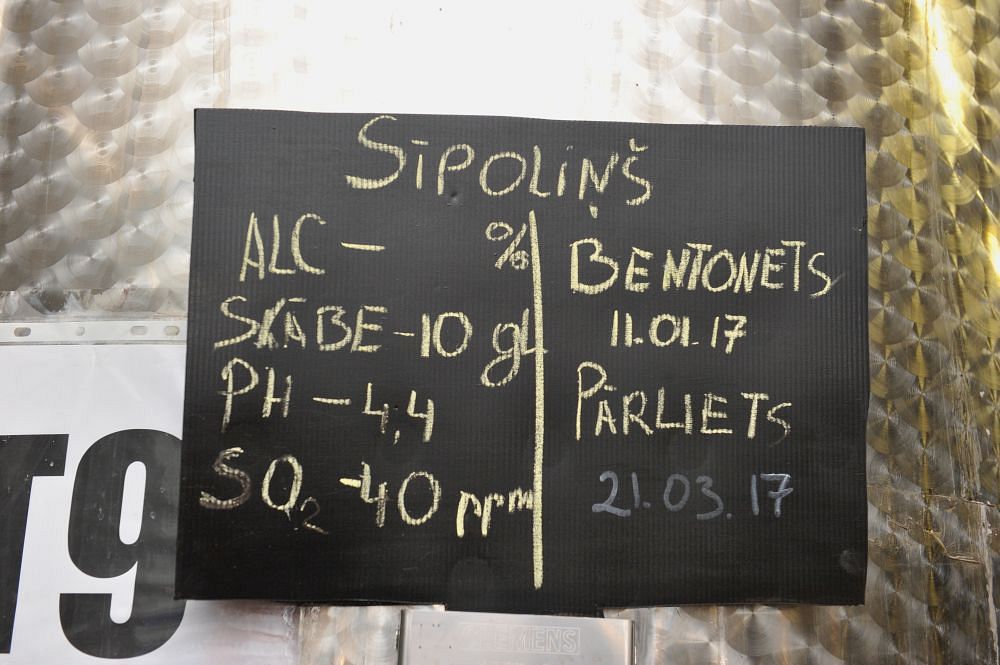 SĪPOLIŅŠ
ALC – %
SKĀBE – 10 g/L
PH – 4,4
SO₂ – 40 ppm
BENTONETS
11.01.17
PĀRLIETS
21.03.17
T9
CLEMENS